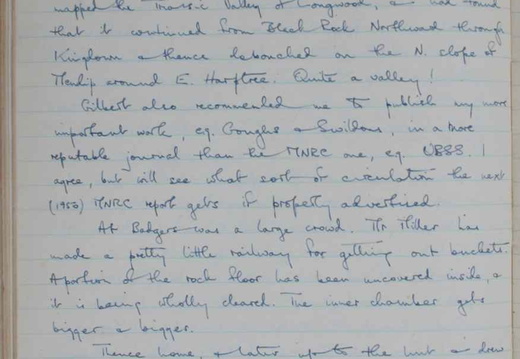 mapped the Triassic Valley of Longwood, & had found
that it continued from Black Rock Northward through
Kingdown & thence debouched on the N. slope of
Mendip around E. Harptree. Quite a valley!
Gilbert also recommended me to publish my more
important work, eg. Goughs & Swildons, in a more
reputable journal than the MNRC one, eg. UBSS. I
agree, but will see what sort of circulation the next
(1950) MNRC report gets if properly advertised.
At Badgers was a large crowd. Mr Miller has
made a pretty little railway for getting out buckets.
A portion of the rock floor has been uncovered inside, &
it is being wholly cleared. The inner chamber gets
bigger & bigger.
Thence home, & later up to the hut & drew